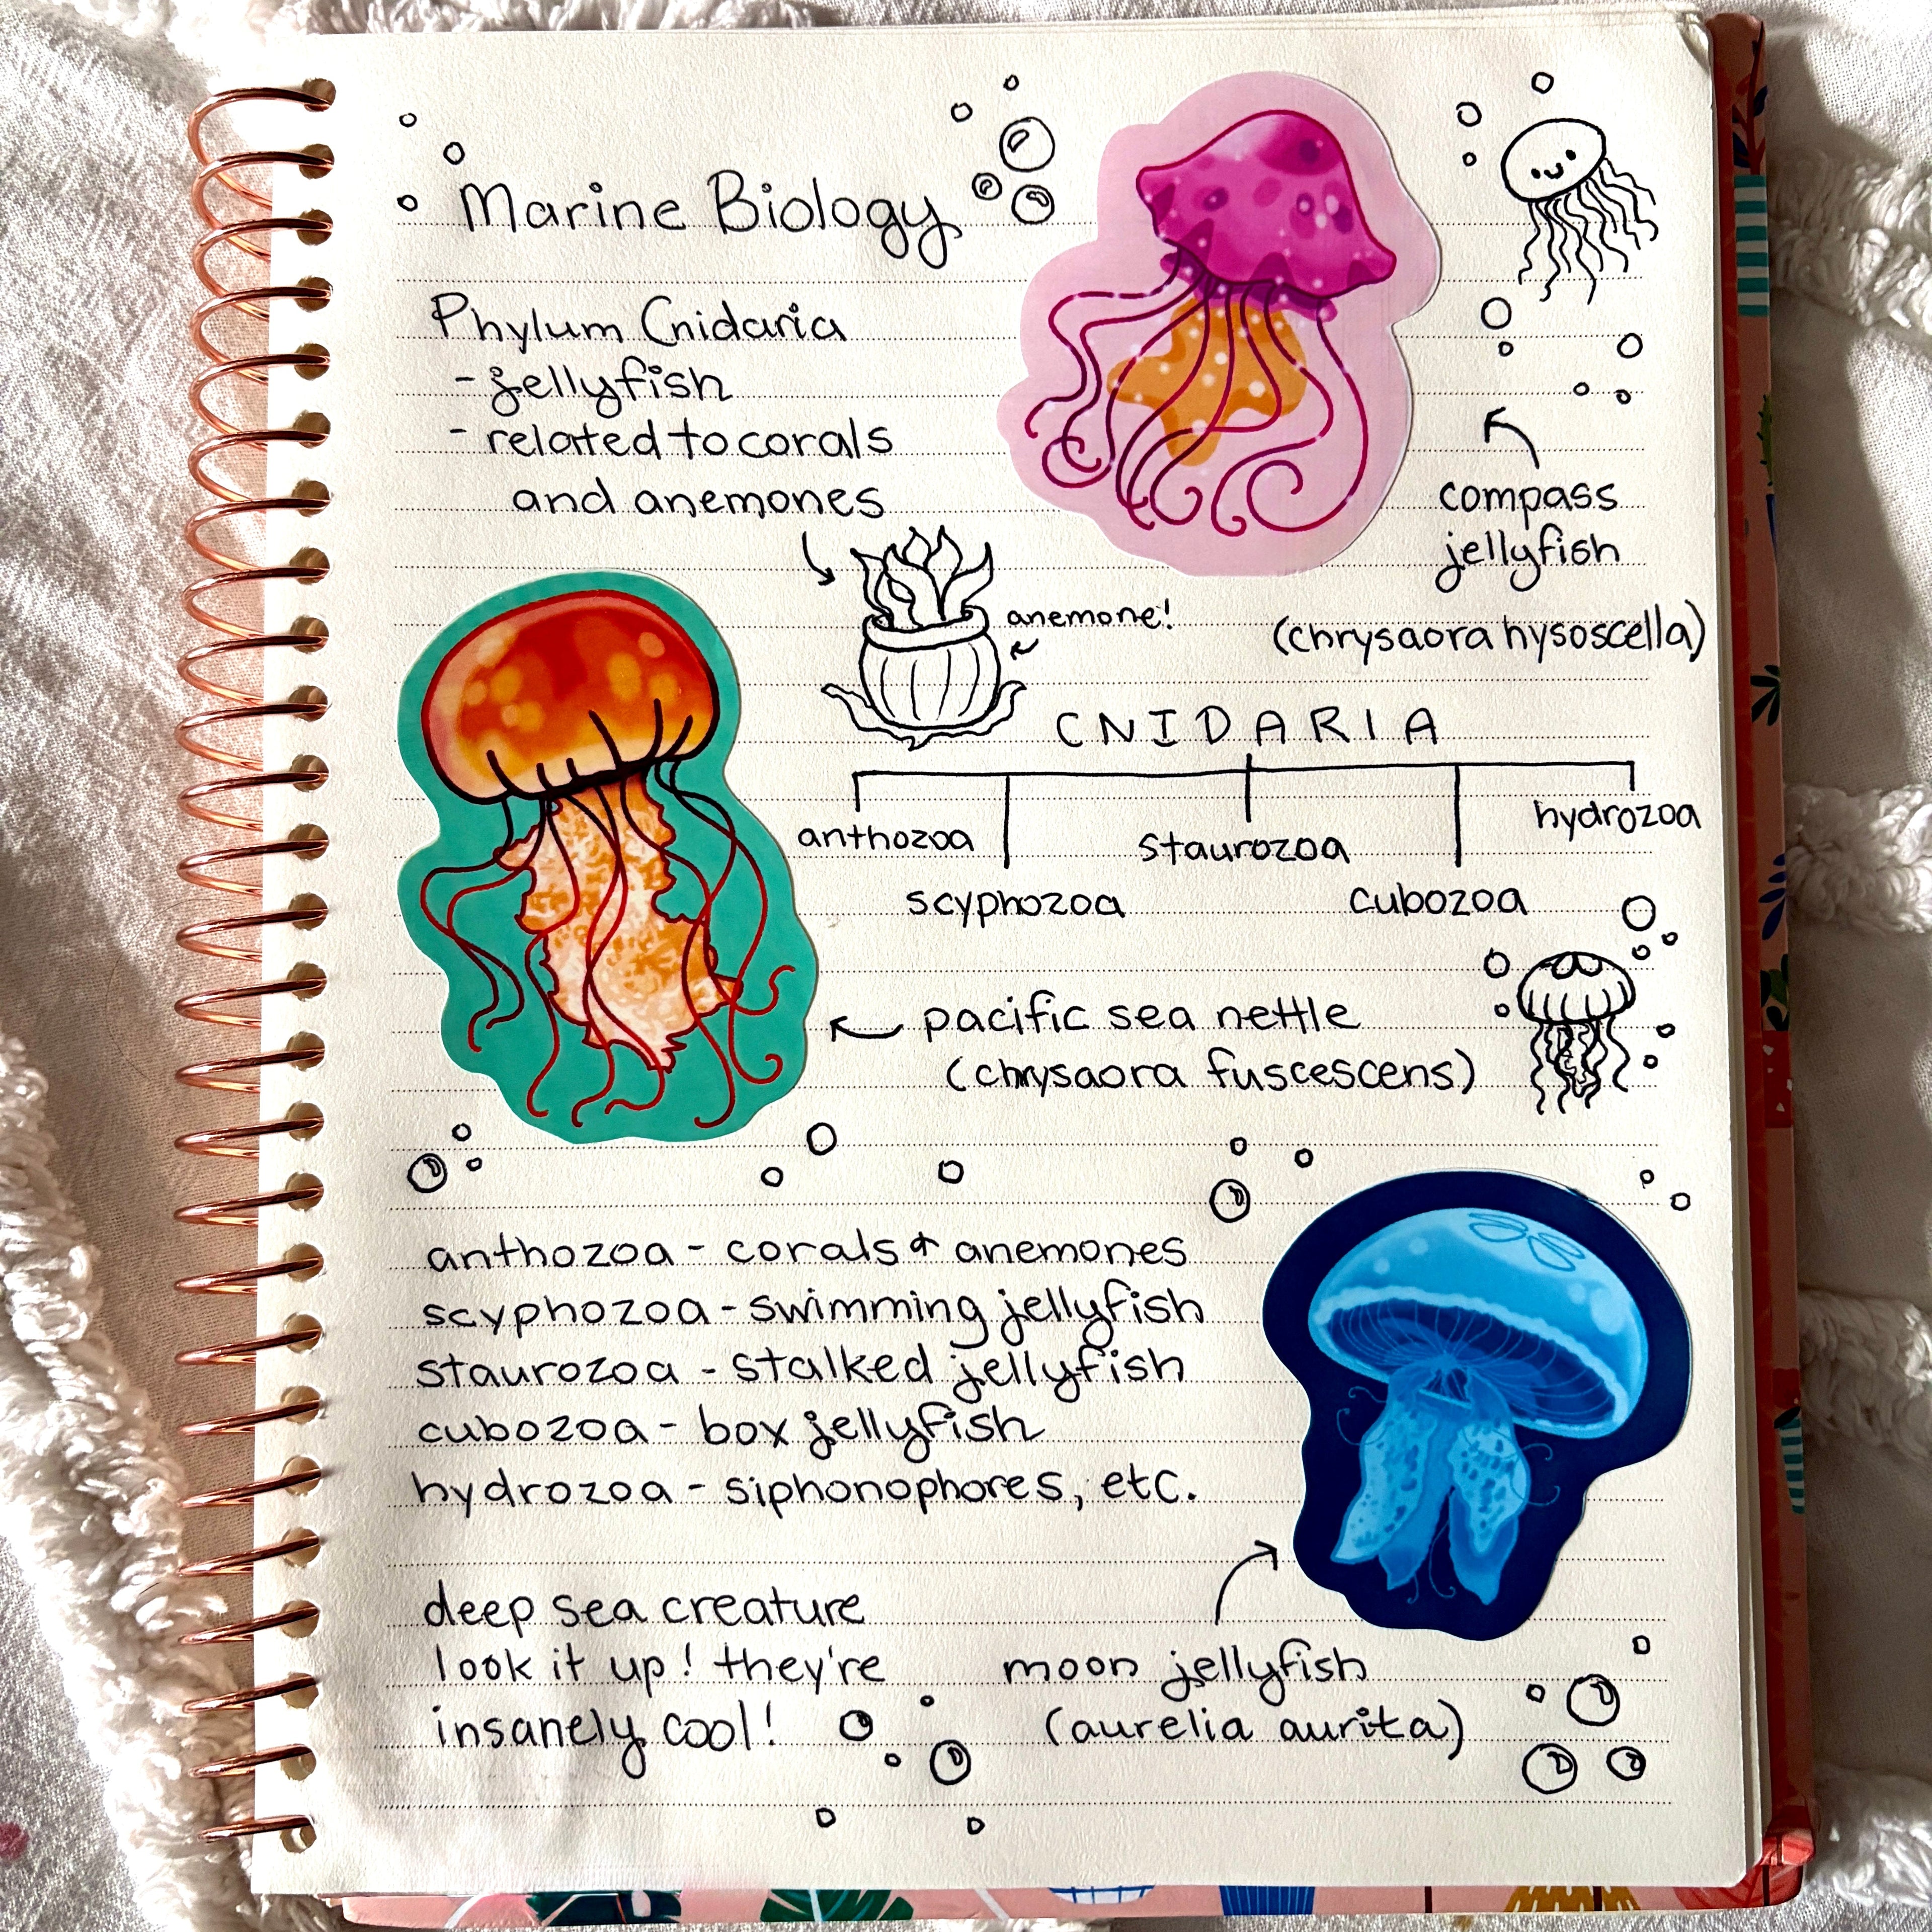 Marine Biology
Phylum Cnidaria
- jellyfish
- related to corals
and anemones
compass
jellyfish
(chrysaora hysoscella)
anemone!
CNIDARIA
anthozoa
scyphozoa
staurozoa
cubozoa
hydrozoa
pacific sea nettle
(chrysaora fuscescens)
anthozoa - corals & anemones
scyphozoa - swimming jellyfish
staurozoa - stalked jellyfish
cubozoa - box jellyfish
hydrozoa - siphonophores, etc.
deep sea creature
look it up! they're
insanely cool!
moon jellyfish
(aurelia aurita)